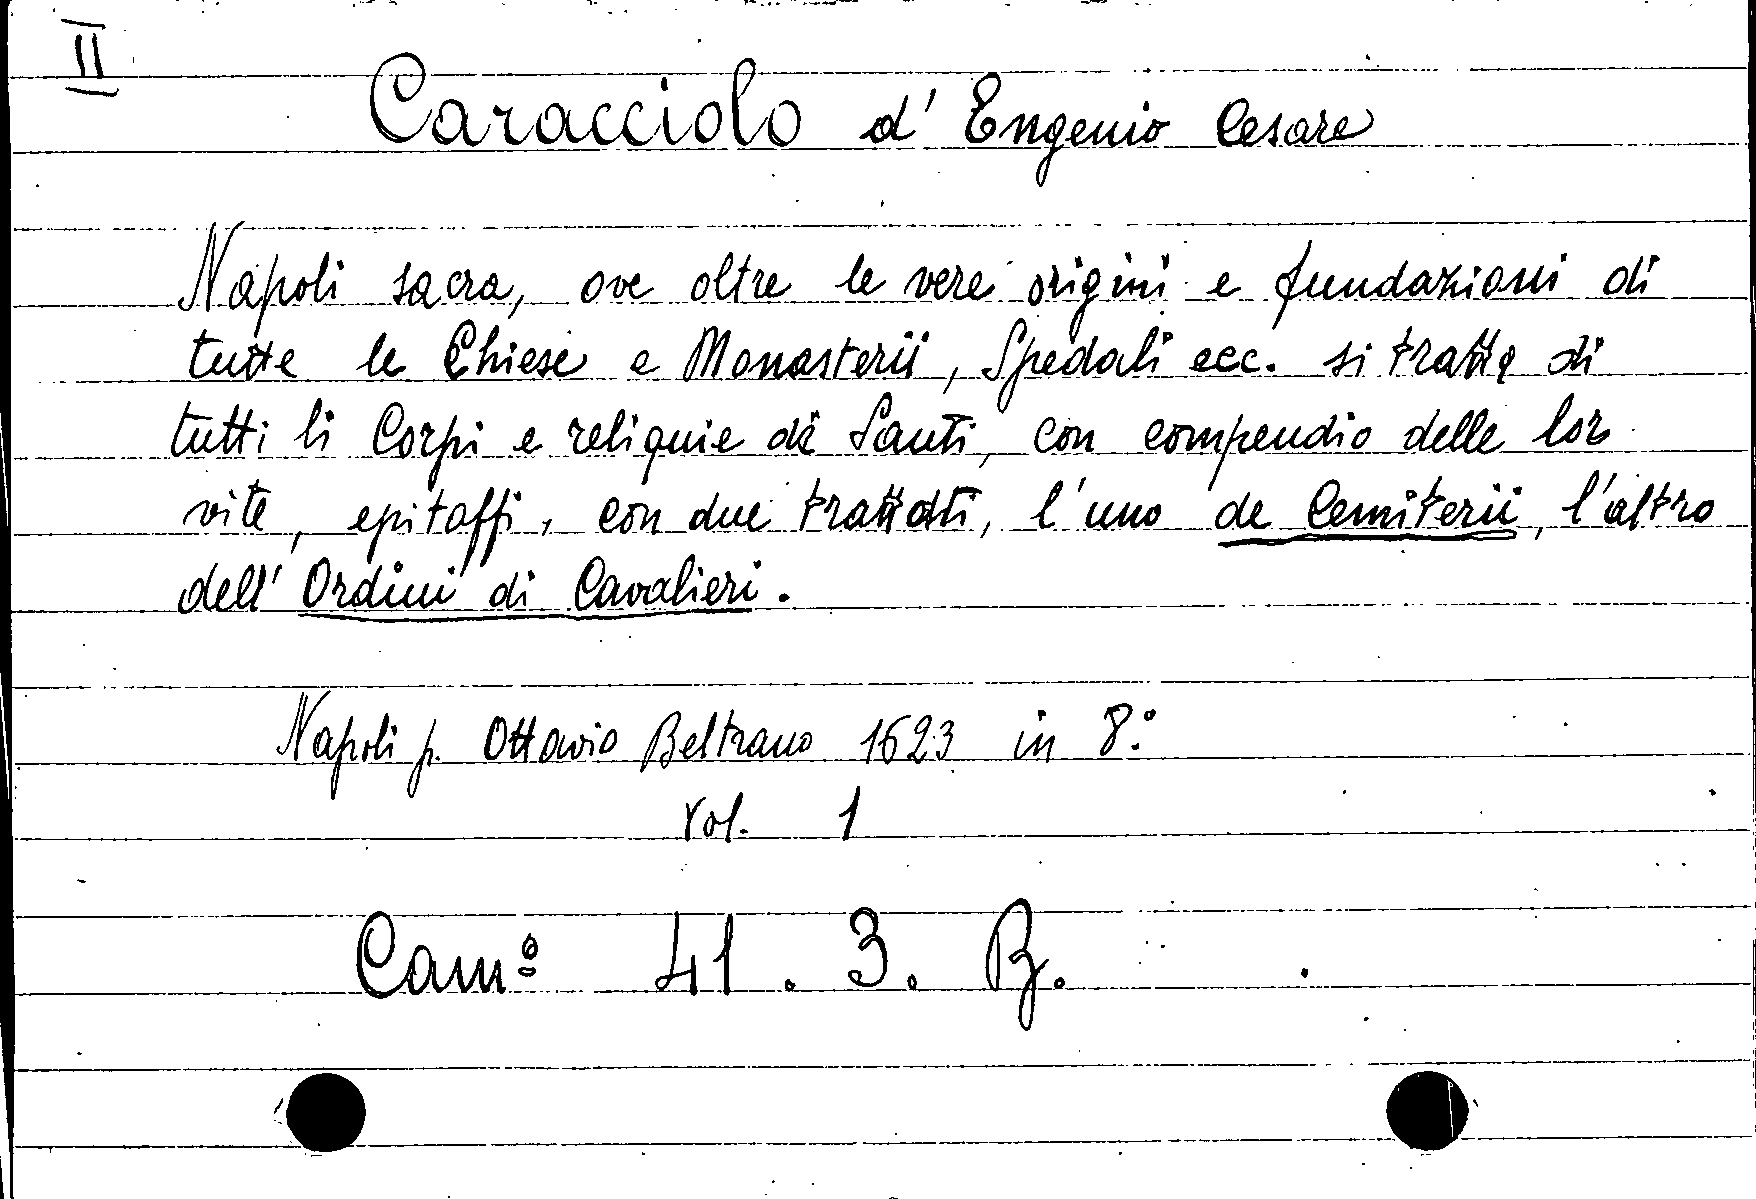 II
Caracciolo d' Engenio Cesare
Napoli sacra, ove oltre le vere origini e fundazioni di
tutte le Chiese e Monasterii, Spedali ecc. si tratta di
tutti li Corpi e reliquie di Santi, con compendio delle lor
vite, epitaffi, con due trattati, l'uno de Cemiterii, l'altro
dell' Ordini di Cavalieri.
Napoli p. Ottavio Beltrano 1623 in 8.º
Vol. 1
Camº 41. 3. B.